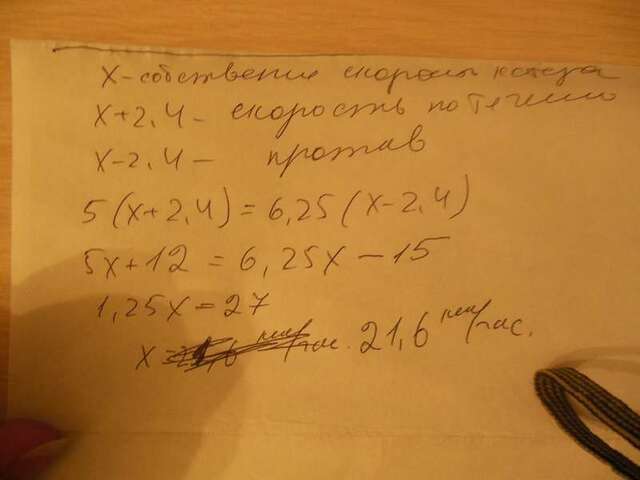 x - собствення скорость катера
x+2,4 - скорость по течению
x-2,4 - против
5(x+2,4) = 6,25(x-2,4)
5x+12 = 6,25x - 15
1,25x = 27
x 21,6 км/час.